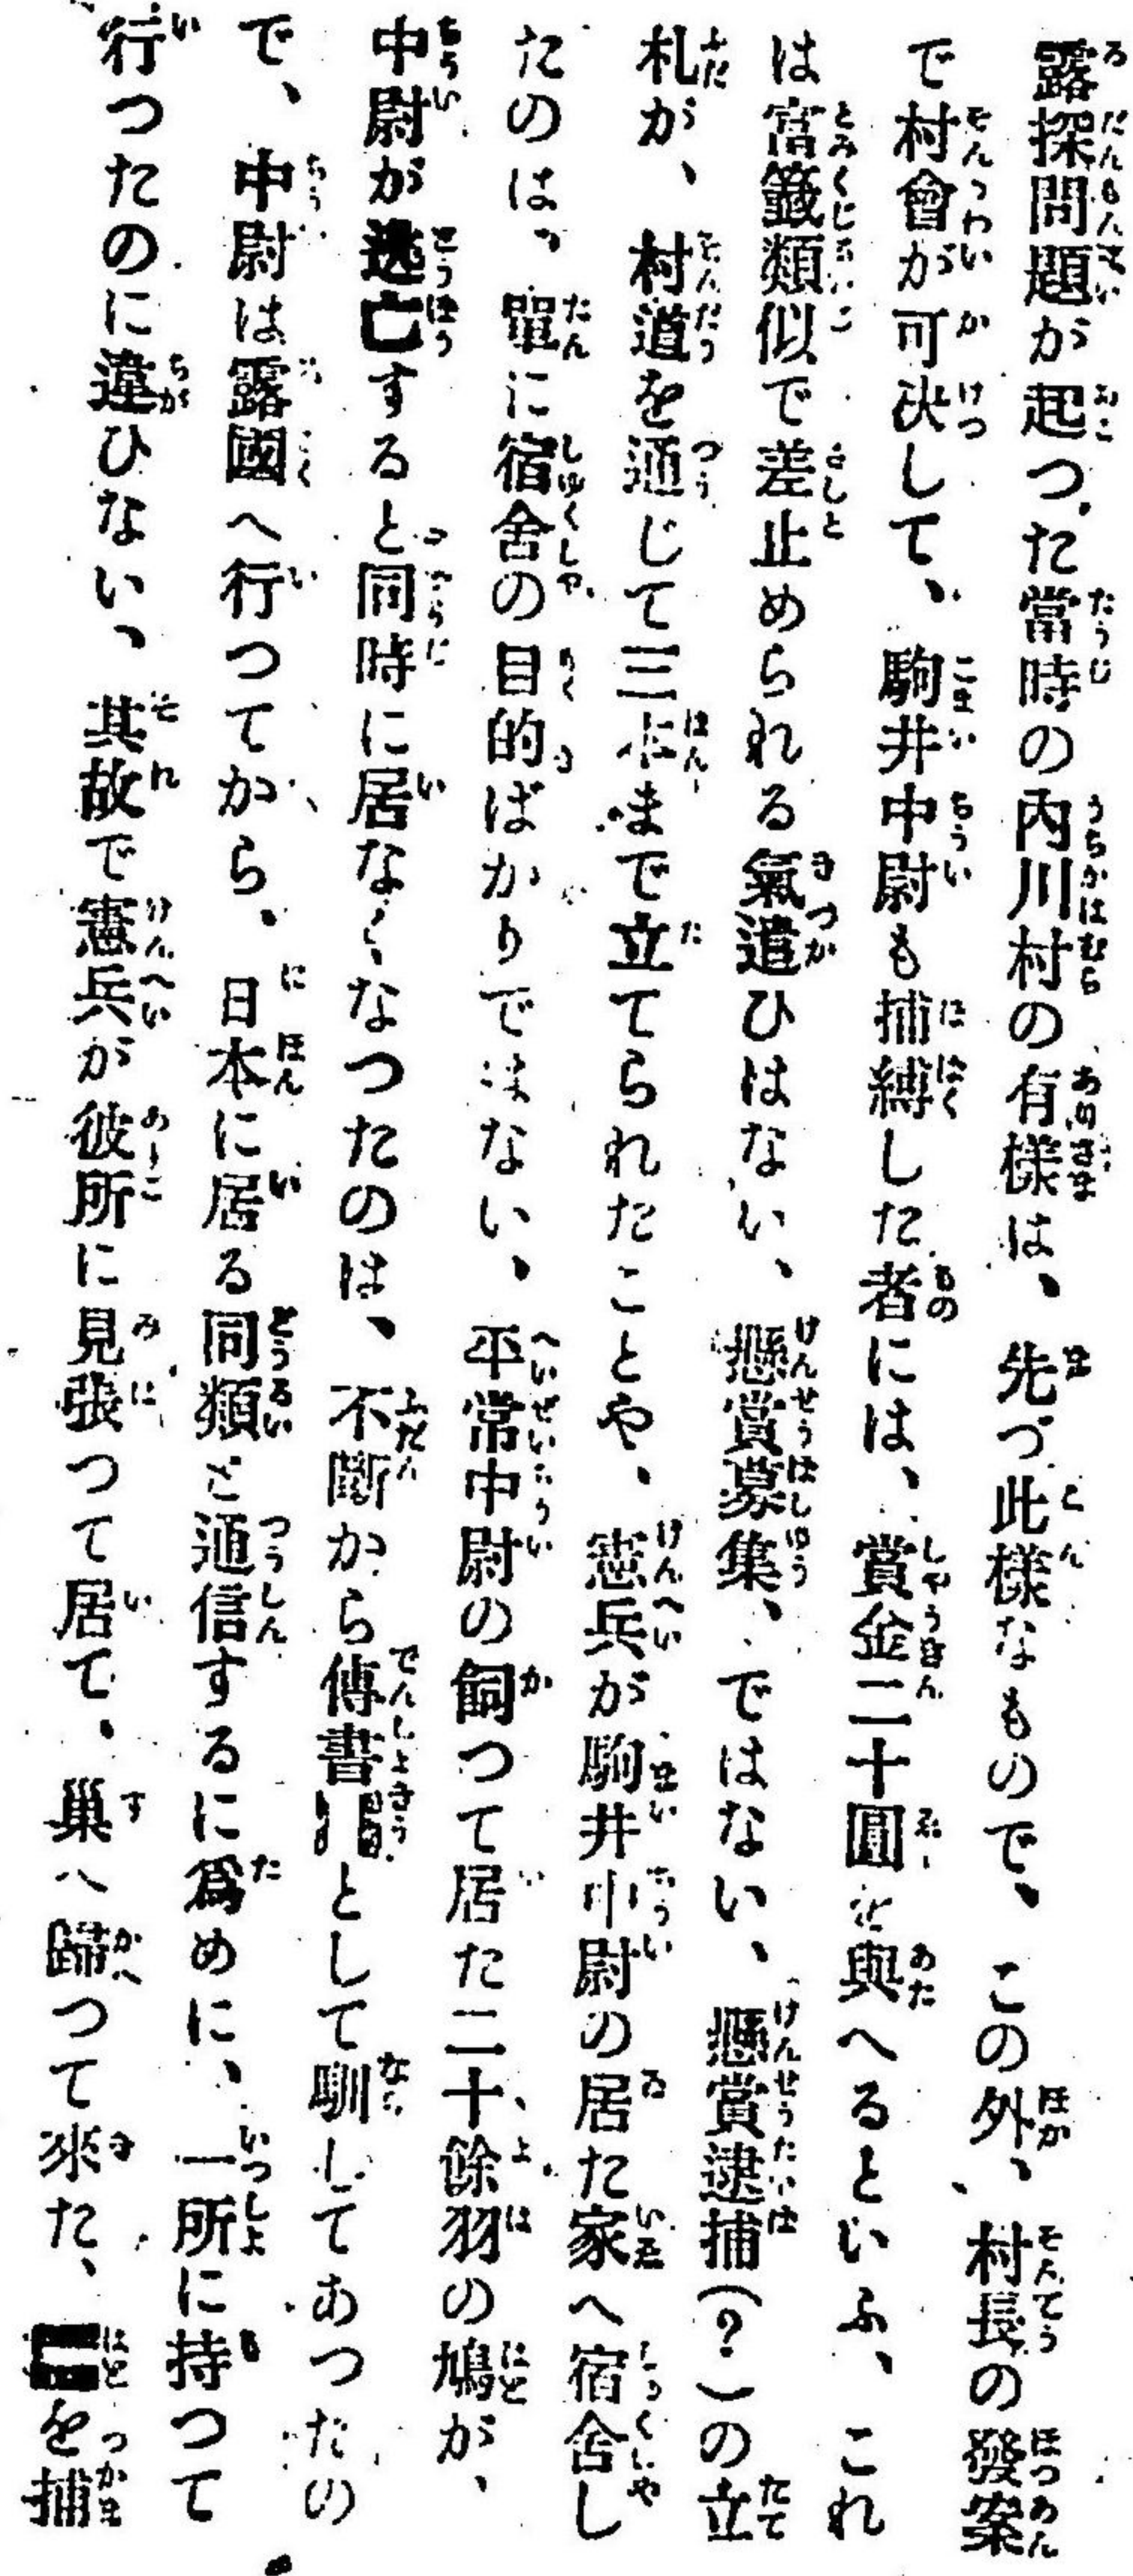 露探問題が起つた當時の内川村の有様は、先づ此様なもので、この外、村長の發案
で村會が可決して、駒井中尉も捕縛した者には、賞金二十圓を與へるといふ、これ
は富籤類似で差止められる氣遣ひはない、懸賞募集、ではない、懸賞逮捕(?)の立
札が、村道を通じて三本まで立てられたことや、憲兵が駒井中尉の居た家へ宿舍し
たのは、單に宿舍の目的ばかりではない、平常中尉の飼つて居た二十餘羽の鳩が、
中尉が逃亡すると同時に居なくなつたのは、不斷から傳書として馴してあつたの
で、中尉は露國へ行つてから、日本に居る同類と通信するに爲めに、一所に持つて
行つたのに違ひない、其故で憲兵が彼所に見張つて居て、巢へ歸つて來た、を捕